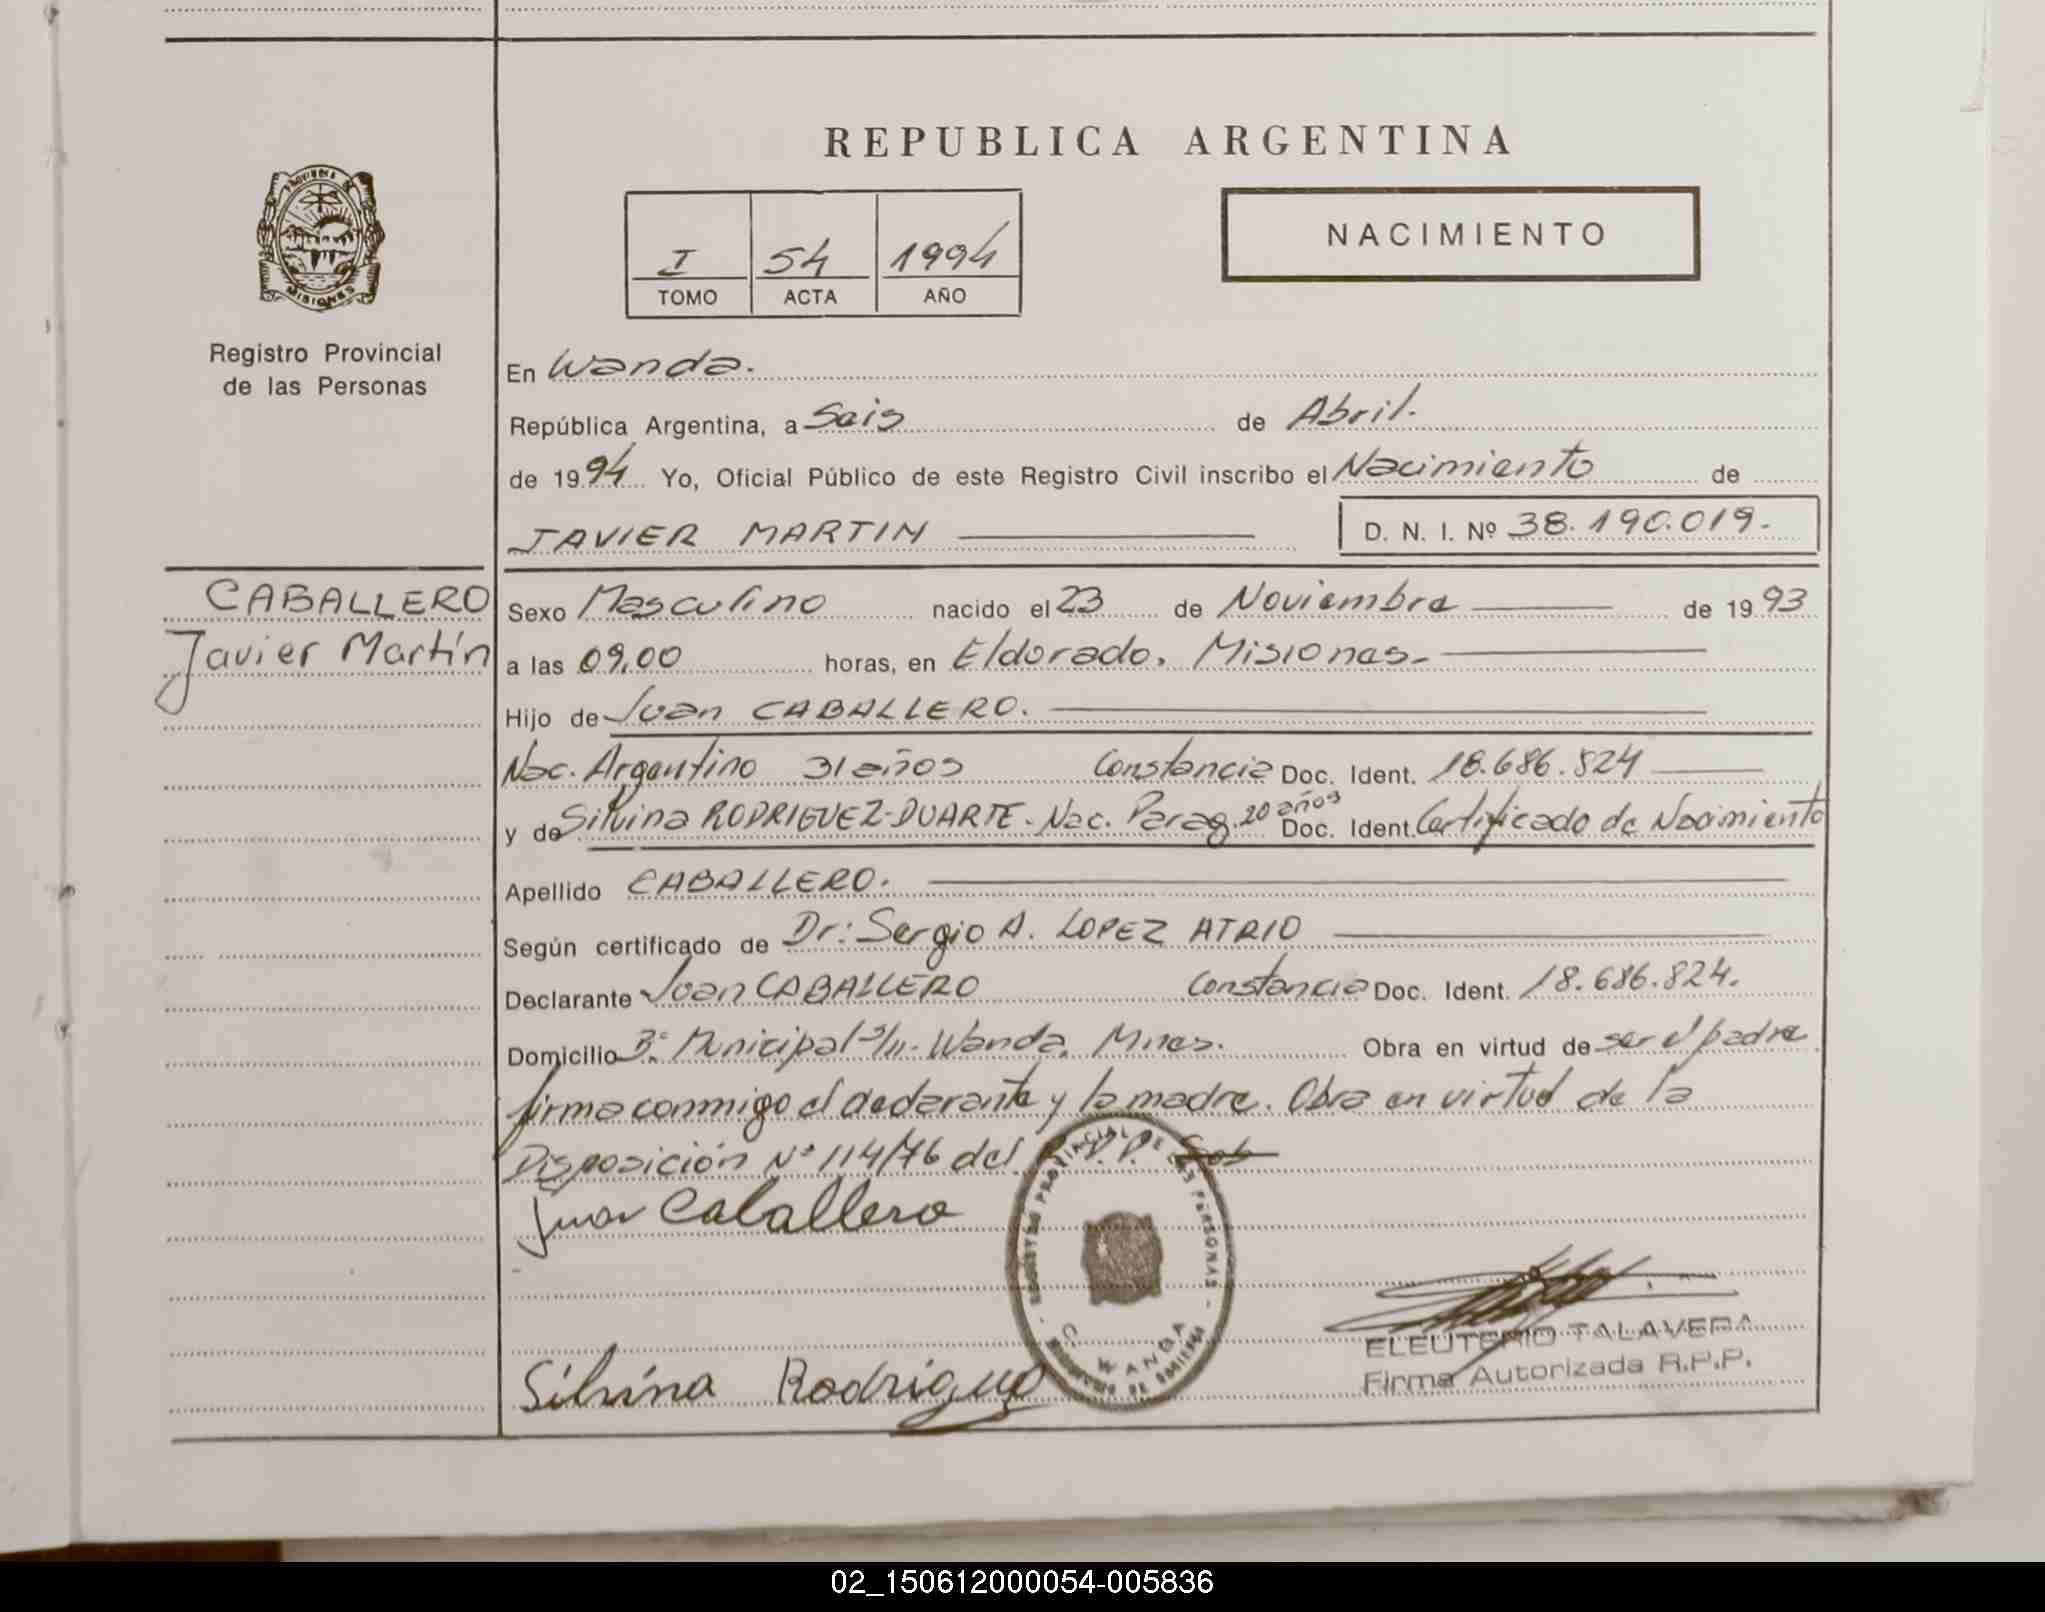 REPUBLICA ARGENTINA
PROVINCIA DE
MISIONES
Registro Provincial
de las Personas
I 54 1994
TOMO ACTA AÑO
NACIMIENTO
En Wanda.
República Argentina, a Seis de Abril.
de 1994 Yo, Oficial Público de este Registro Civil inscribo el Nacimiento de
JAVIER MARTIN D. N. I. Nº 38.190.019.
CABALLERO
Javier Martín
Sexo Masculino nacido el 23 de Noviembre de 1993
a las 09,00 horas, en Eldorado, Misiones.
Hijo de Juan CABALLERO.
Nac. Argentino 31 años Constancia Doc. Ident. 18.686.824
y de Silvina RODRIGUEZ-DUARTE. Nac. Parag. 20 años Doc. Ident. Certificado de Nacimiento
Apellido CABALLERO.
Según certificado de Dr: Sergio A. LOPEZ ATRIO
Declarante Juan CABALLERO Constancia Doc. Ident. 18.686.824.
Domicilio Bº Municipal s/n. Wanda, Mnes. Obra en virtud de ser el padre
firma conmigo el declarante y la madre. Obra en virtud de la
Disposición Nº 114/76 del
REGISTRO PROVINCIAL DE LAS PERSONAS
WANDA
Juan Caballero
Silvina Rodriguez
ELEUTERIO TALAVERA
Firma Autorizada R.P.P.
02_150612000054-005836